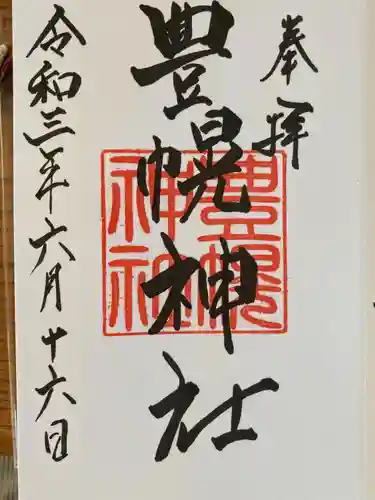 奉拝
豊幌神社
豊幌神社
令和三年六月十六日